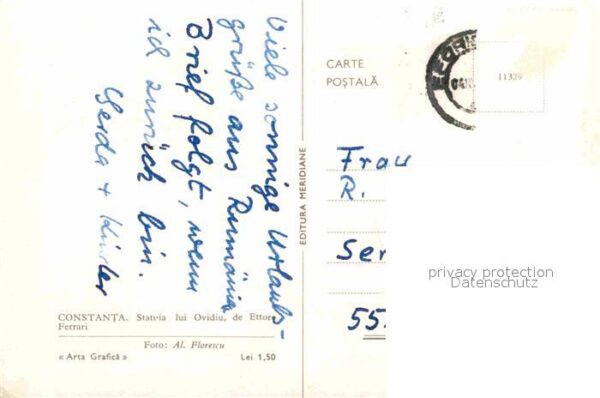 Viele sonnige Urlaubs-
grüße aus Rumänien
Brief folgt, wenn
ich zurück bin.
Gerda + Kinder
CONSTANȚA. Statuia lui Ovidiu, de Ettore
Ferrari
Foto: Al. Florescu
« Arta Grafică »
Lei 1,50
EDITURA MERIDIANE
CARTE
POȘTALĂ
11329
Frau
R.
Ser
55
privacy protection
Datenschutz